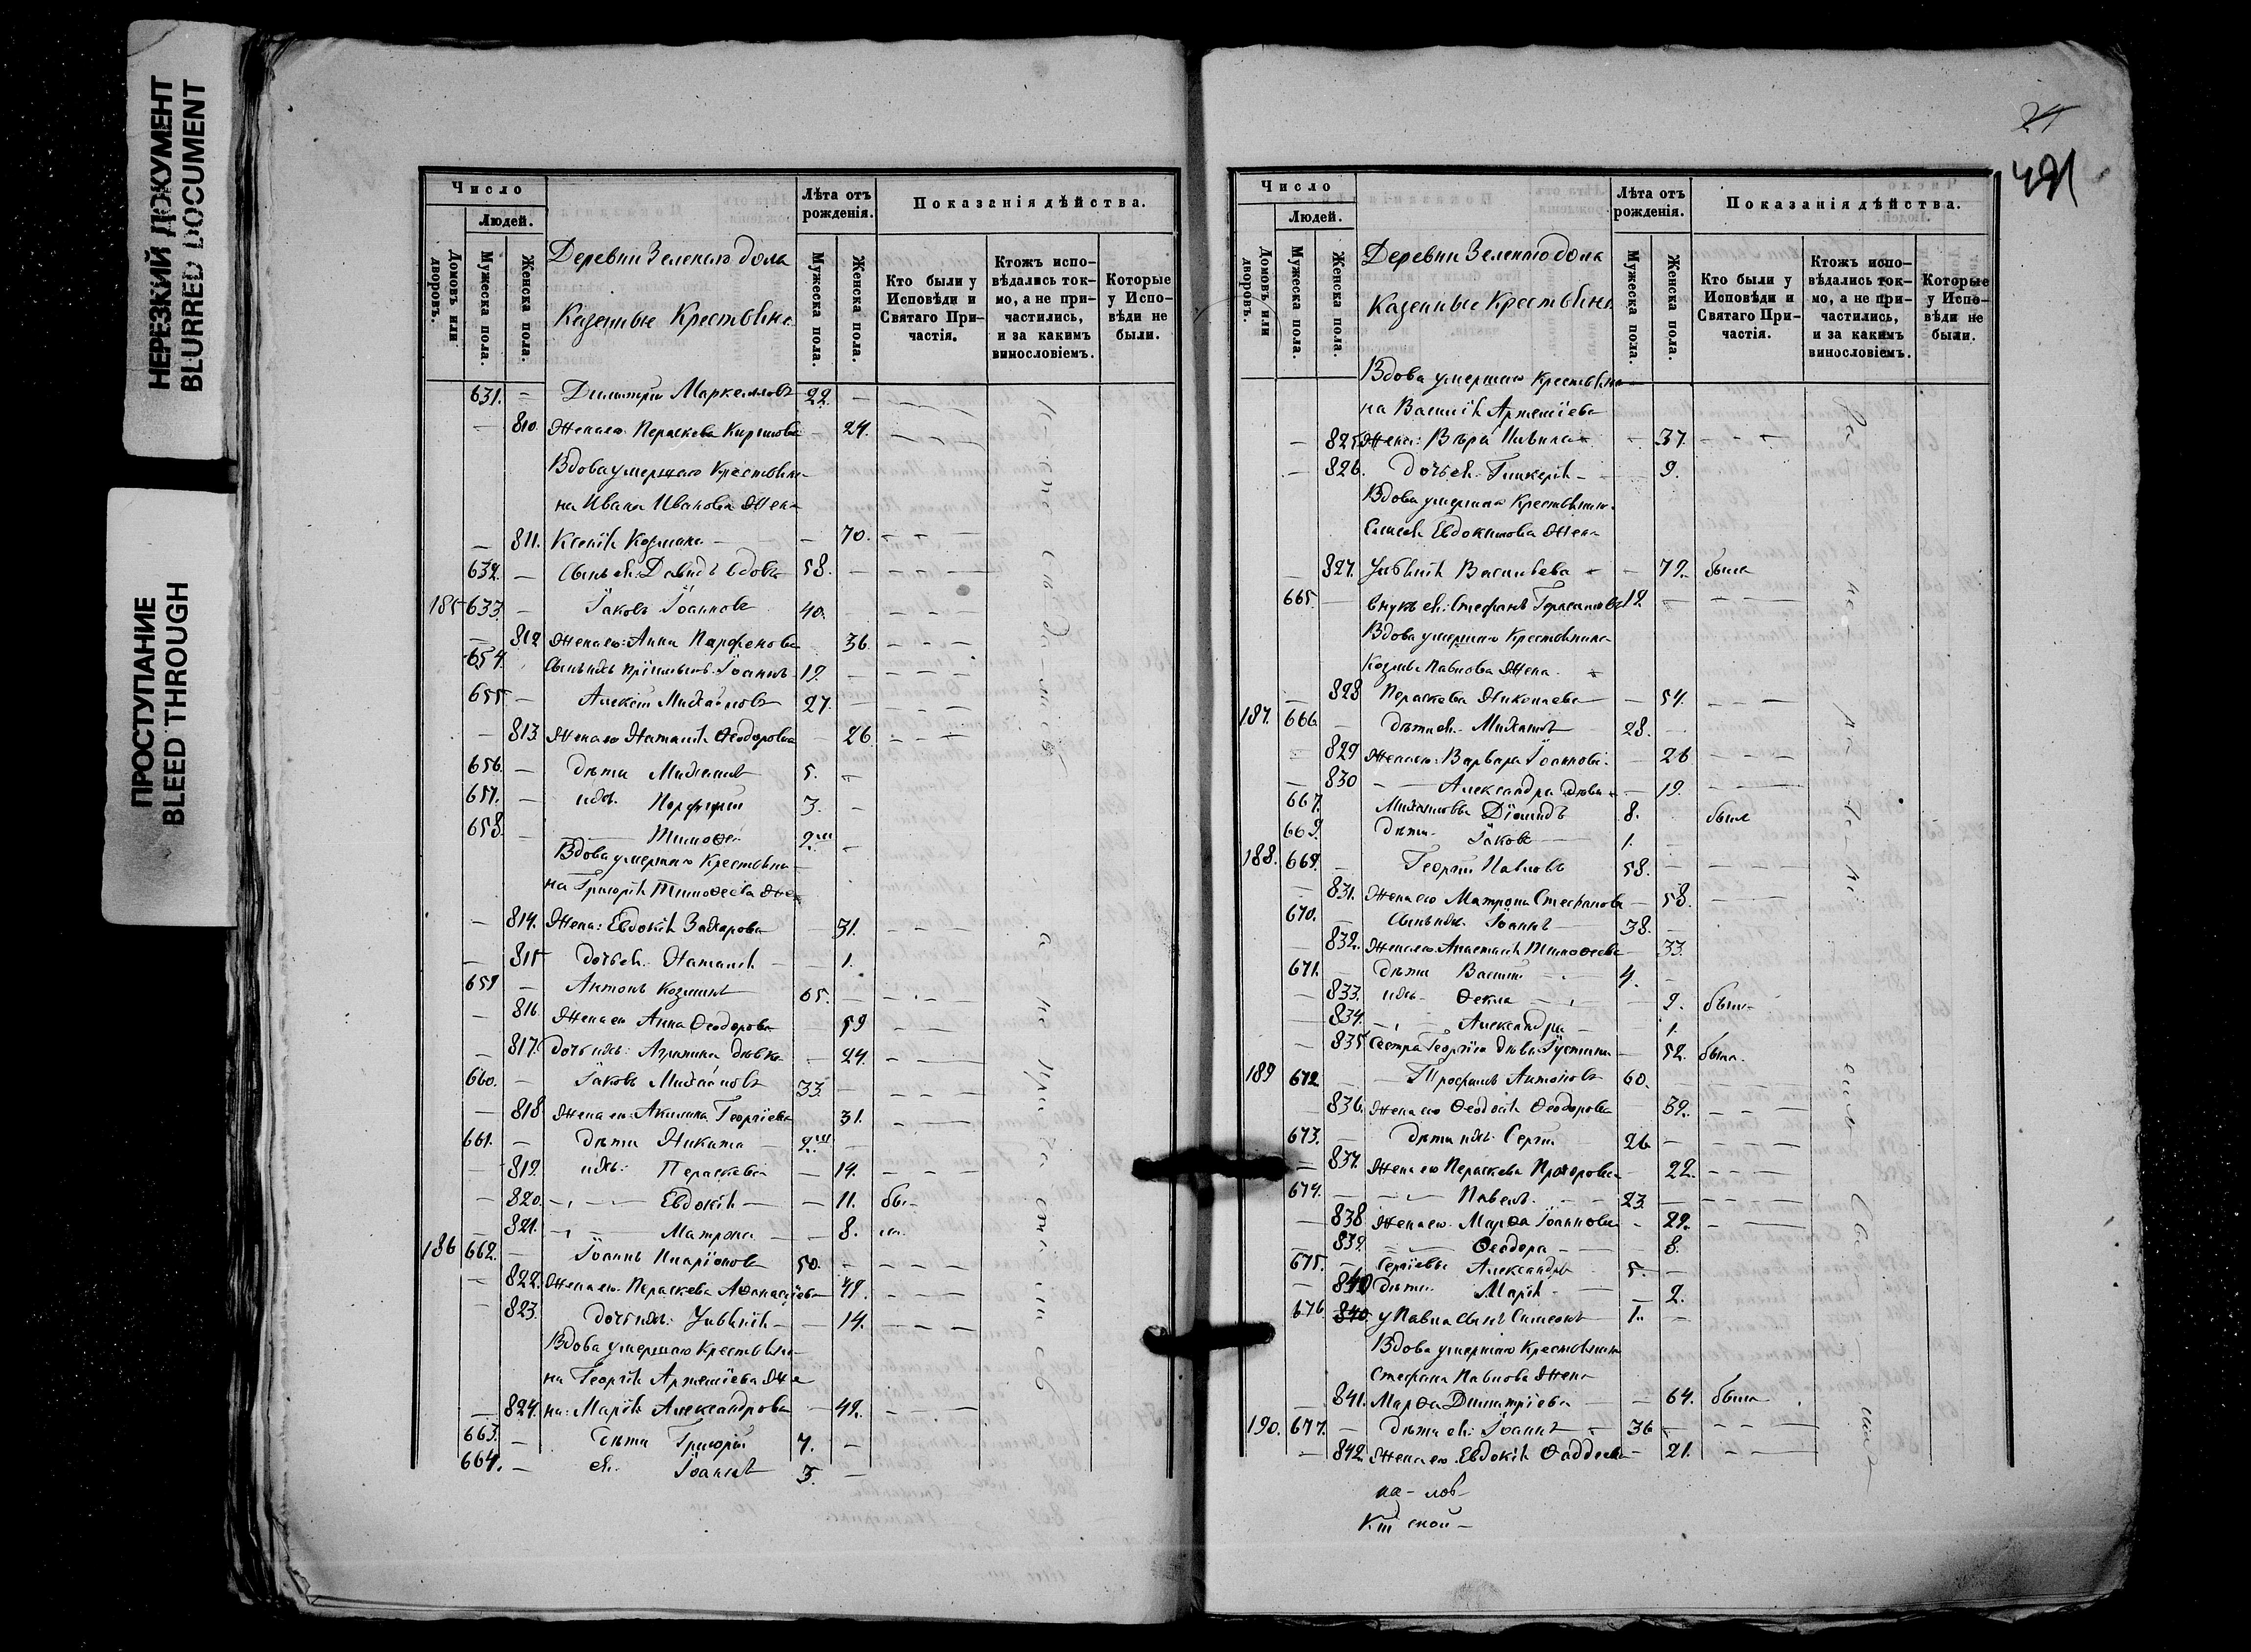 НЕРЕЗКИЙ ДОКУМЕНТ
BLURRED DOCUMENT
ПРОСТУПАНИЕ
BLEED THROUGH
Число
Людей.
Домовъ или дворовъ.
Мужеска пола.
Женска пола.
Деревни Зеленаго дола
Казенные Крестьяне
Лѣта отъ рожденія.
Мужеска пола.
Женска пола.
Показанія дѣйства.
Кто были у Исповѣди и Святаго При-частія.
Ктожъ испо-вѣдались ток-мо, а не при-частились, и за какимъ винословіемъ.
Которые у Испо-вѣди не были.
631. — Димитрій Маркелловъ 22. —
— 810. Жена его Параскева — 24.
Вдова умершаго Крестьяни-
на Ивана Иванова Жена
— 811. Ксенія Козмина — 70.
632. — Сынъ ея: Давидъ вдовъ 58. —
185 633. — Іаковъ Іоанновъ 40.
— 812 Жена его: Анна Парфенова 36.
654. Сынъ ихъ Іоаннъ 19. —
655 — Алексій Михайловъ 27. —
— 813. Жена его Наталія Ѳеодорова — 26.
656. — дѣти Михаилъ 5. —
657. — ихъ. Порфирій 3. —
658. — Тимоѳей 2. —
Вдова умершаго Крестьяни-
на Григорія Тимоѳеева Же-
— 814. Жена: Евдокія Захарова — 31.
— 815 дочь ея. Наталія — 1.
659 — Антонъ Козминъ 65. —
— 816 Жена его Анна Ѳеодорова 59
— 817. дочь ихъ: Агрипина дѣвка — 24.
660. — Іаковъ Михайловъ 33. —
— 818 Жена его: Акилина Георгіева 31.
661. — дѣти Никита 2. —
— 819. ихъ: Параскева — 14.
— 820. Евдокія — 11. бы-
— 821. Матрона — 8. ли.
186 662. — Іоаннъ Иларіоновъ 50. —
— 822. Жена его. Параскева Аѳанасіева 49.
— 823. дочь ихъ: Уліянія — 14.
Вдова умершаго Крестьяни-
на Георгія Артеміева Же-
— 824. на: Марія Александрова — 42.
663. — дѣти Григорій 7. —
664. — ея. Іоаннъ 3. —
491
Число
Людей.
Домовъ или дворовъ.
Мужеска пола.
Женска пола.
Деревни Зеленаго дола
Казенные Крестьяне
Лѣта отъ рожденія.
Мужеска пола.
Женска пола.
Показанія дѣйства.
Кто были у Исповѣди и Святаго При-частія.
Ктожъ испо-вѣдались ток-мо, а не при-частились, и за какимъ винословіемъ.
Которые у Испо-вѣди не были.
Вдова умершаго Крестьяни-
на Василія Артеміева
— 825 Жена: Вѣра — 37.
— 826. дочь ея. Гликерія — 9.
Вдова умершаго Крестьянина
Елисея Евдокимова Жена
— 827. Уліянія Васильева — 72. была
665. — внукъ ея: Стефанъ Герасимовъ 12. —
Вдова умершаго Крестьянина
Козмы Павлова Жена.
— 828 Параскева Николаева — 54.
187. 666. — дѣти ея. Михаилъ 28. —
— 829 Жена его: Варвара Іоаннова. — 26
— 830 Александра дѣвка — 19.
667. Михаиловы Діомидъ 8. былъ
669. дѣти. Іаковъ 1. —
188. 669. — Георгій Павловъ 58. —
— 831. Жена его Матрона Стефанова — 58.
670. — Сынъ ихъ Іоаннъ 38. —
— 832. Жена его Анастасія Тимоѳеева 33.
671. — дѣти Василій 4. —
— 833. ихъ Ѳекла — 9. были
— 834. Александра 1.
— 835 Сестра Георгія дѣвка Іустина — 52. была.
189 672 — Трофимъ Антоновъ 60.
— 836. Жена его Ѳеодосія Ѳеодорова 39.
673. — дѣти ихъ: Сергій 26 —
— 837. Жена его Параскева Прохорова 22.
674. — Павелъ. 23. —
— 838 Жена его. Марѳа Іоаннова — 22.
— 839. Ѳеодора — 8.
675. — Сергіевы Александръ 5. —
— 840 дѣти. Марія — 2.
676 840 у Павла сынъ Симеонъ 1. —
Вдова умершаго Крестьянина
Стефана Павлова Жена
— 841. Марѳа Димитріева — 64. была
190. 677. — дѣти ея: Іоаннъ 36 —
— 842. Жена его Евдокія Ѳаддеева — 21.